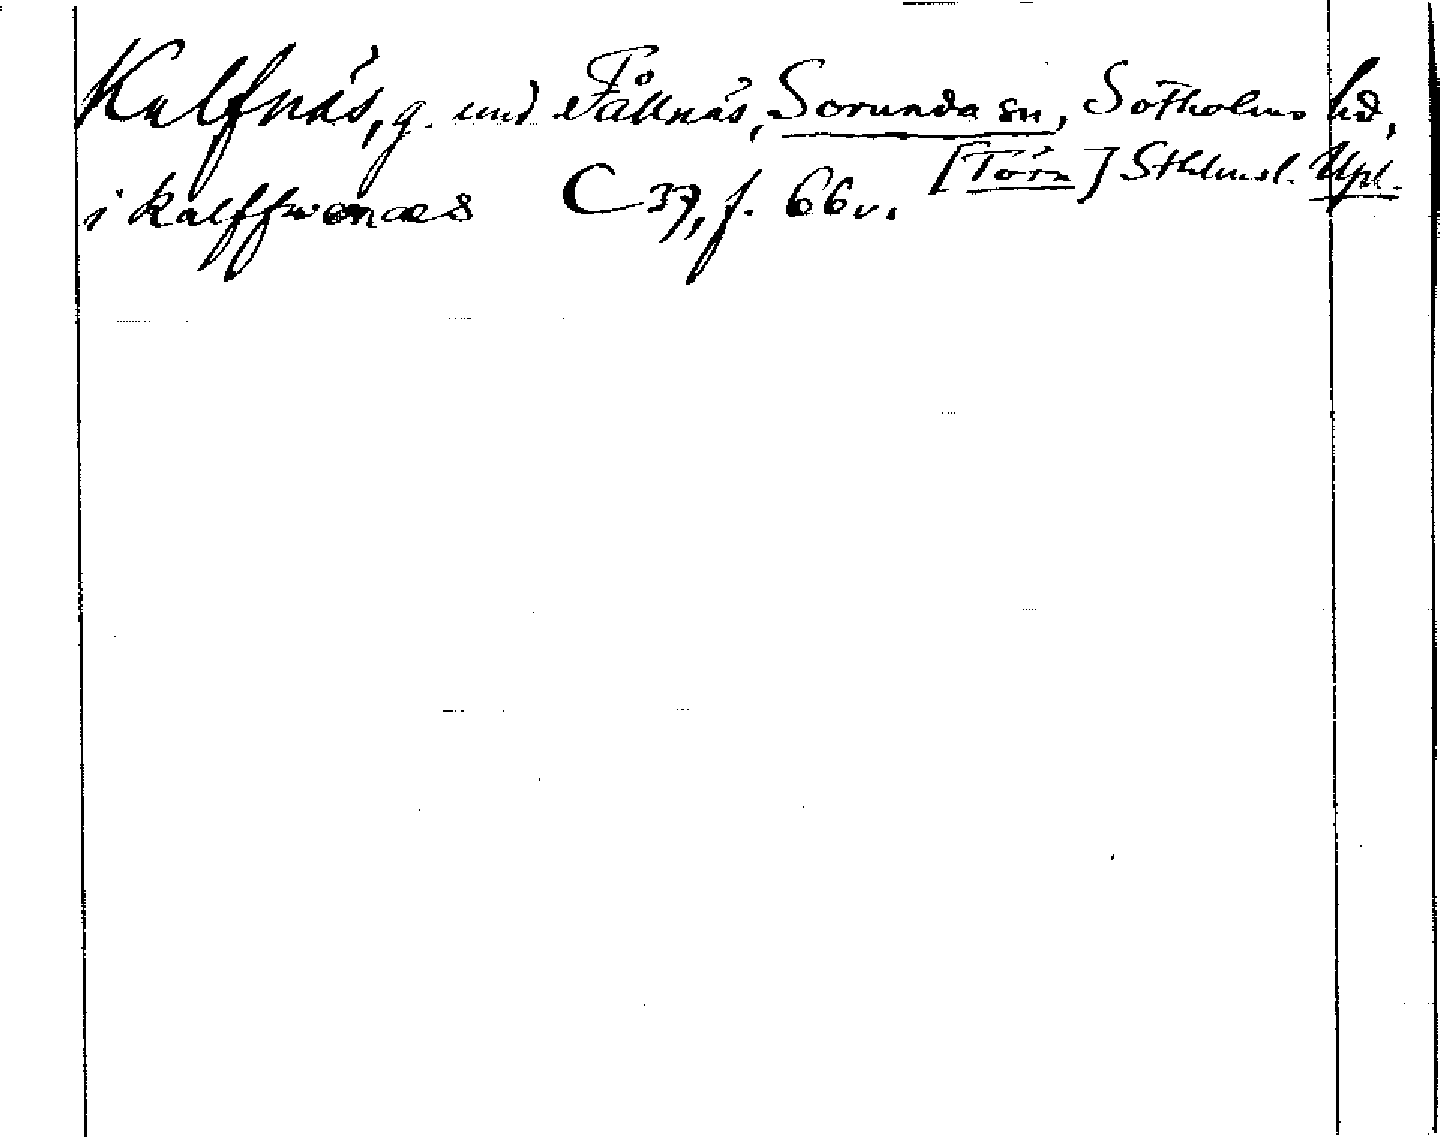 Kalfnäs, g. und Fållnäs, Sorunda sn, Sotholms hd,
[Törn] Sthlmsl. Upl.
i kalffwenæs C 37, f. 66v.